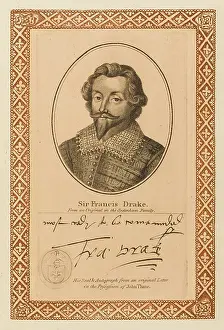 Sir Francis Drake.
From an Original in the Family.
most redy to be comanded
Fra: Drak
His Seal & Autograph from an original Letter
in the Possession of John Thane.